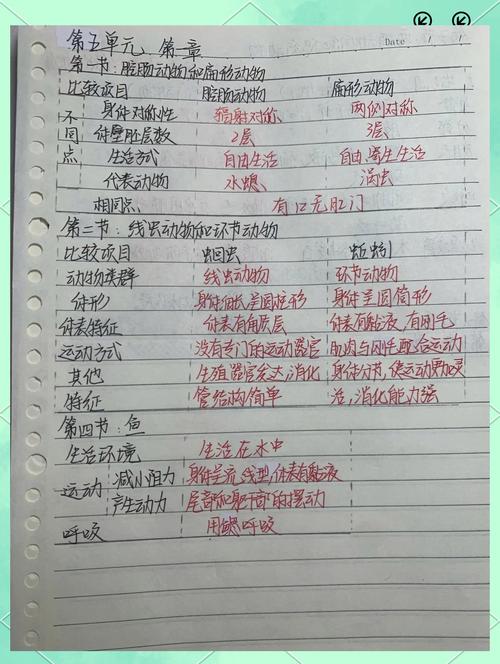 Date
第五单元、第一章
第一节:腔肠动物和扁形动物
比较项目 腔肠动物 扁形动物
不同点 身体对称性 辐射对称 两侧对称
体壁胚层数 2层 3层
生活方式 自由生活 自由、寄生生活
代表动物 水螅、 涡虫
相同点 有口无肛门
第二节:线虫动物和环节动物
比较项目 蛔虫 蚯蚓
动物类群 线虫动物 环节动物
体形 身体细长呈圆柱形 身体呈圆筒形
体表特征 体表有角质层 体表有黏液,有刚毛
运动方式 没有专门的运动器官 肌肉与刚毛配合运动
其他 生殖器官发达,消化 身体分节,使运动更灵
特征 管结构简单 活,消化能力强
第四节:鱼
生活环境 生活在水中
运动 减小阻力 身体呈流线型,体表有黏液
产生动力 尾部和躯干部的摆动
呼吸 用鳃呼吸